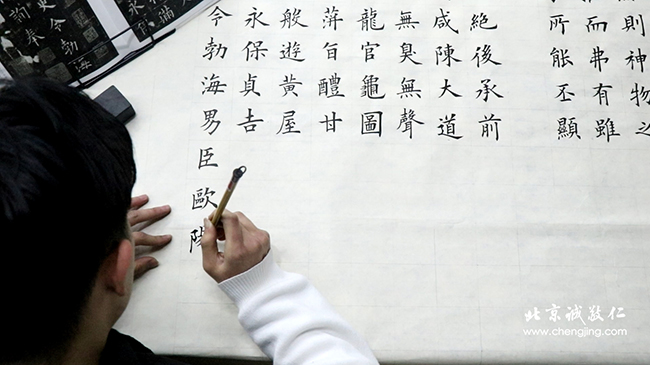 則神物之
而弗有雖
所能丕顯
絕後承前
咸陳大道
無臭無聲
龍官龜圖
萍旨醴甘
般遊黃屋
永保貞吉
令勃海男臣歐陽
令勃海
詢奉
北京诚敬仁
www.chengjing.com